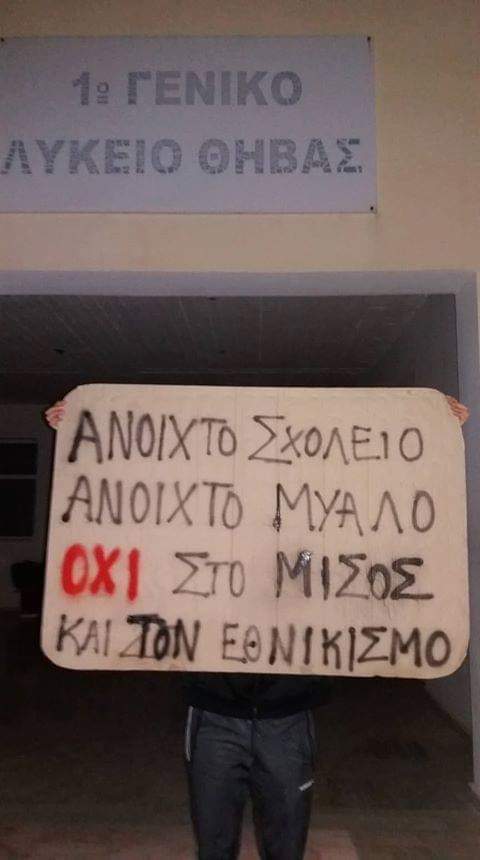 1ο ΓΕΝΙΚΟ
ΛΥΚΕΙΟ ΘΗΒΑΣ
ΑΝΟΙΧΤΟ ΣΧΟΛΕΙΟ
ΑΝΟΙΧΤΟ ΜΥΑΛΟ
ΟΧΙ ΣΤΟ ΜΙΣΟΣ
ΚΑΙ ΣΤΟΝ ΕΘΝΙΚΙΣΜΟ